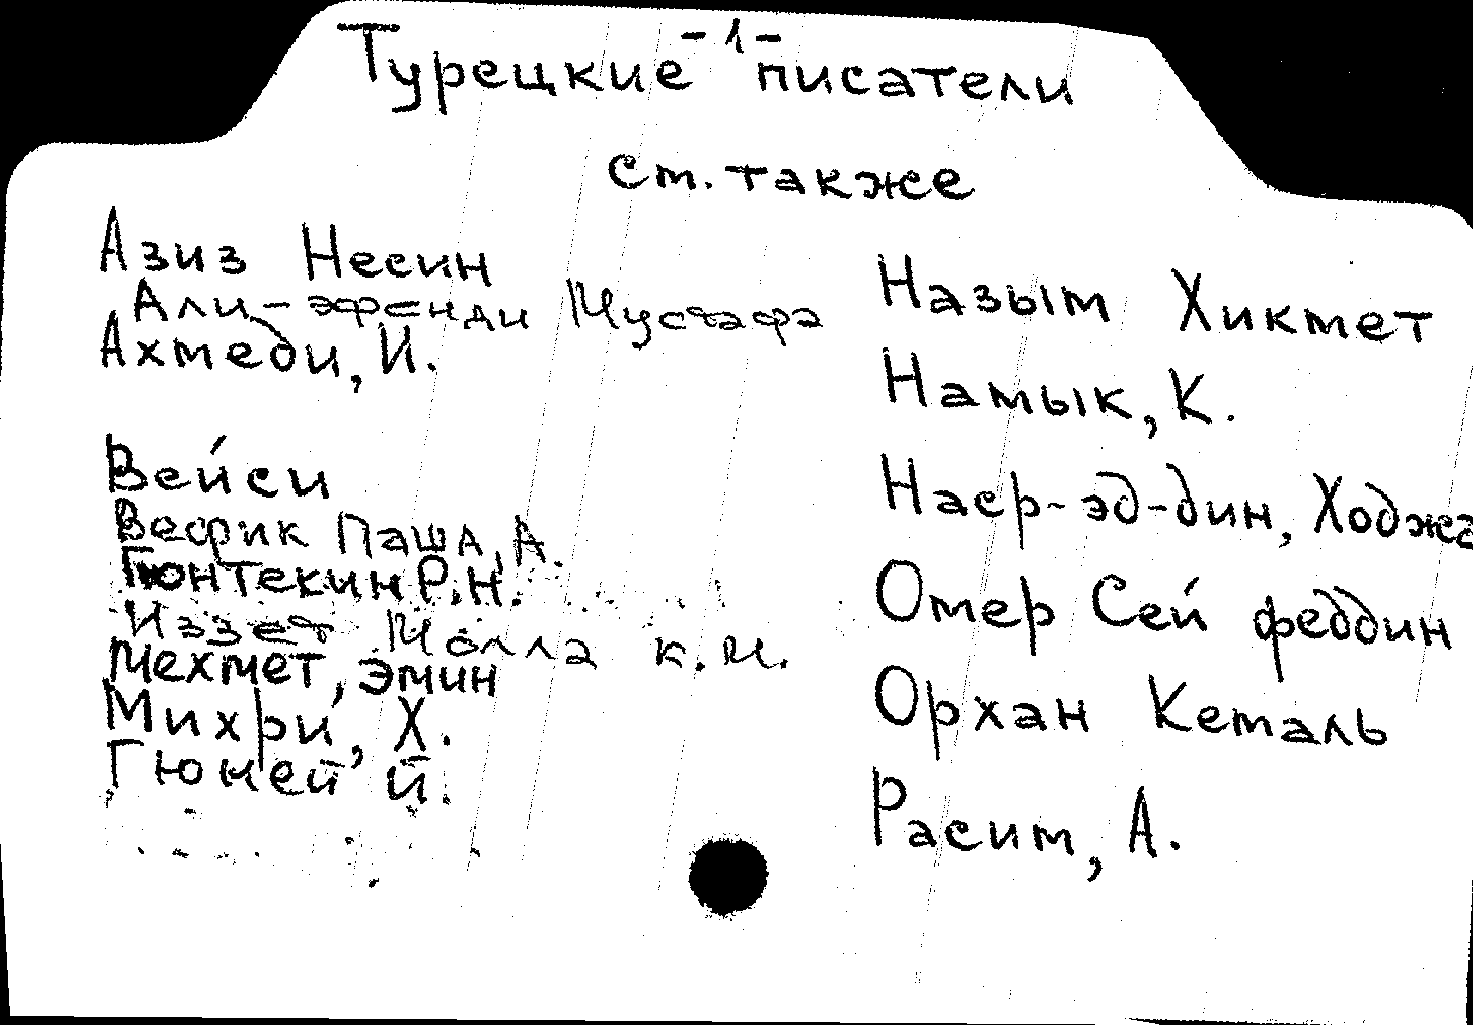 - 1 -
Турецкие писатели
см. также
Азиз Несин
Али-эфенди Мустафа
Ахмеди, И.
Вейси
Вефик Паша, А.
Гюнтекин Р.Н.
Иззет Молла К.М.
Мехмет, Эмин
Михри, Х.
Гюней Й.
Назым Хикмет
Намык, К.
Наср-эд-дин, Ходжа
Омер Сейфеддин
Орхан Кемаль
Расим, А.